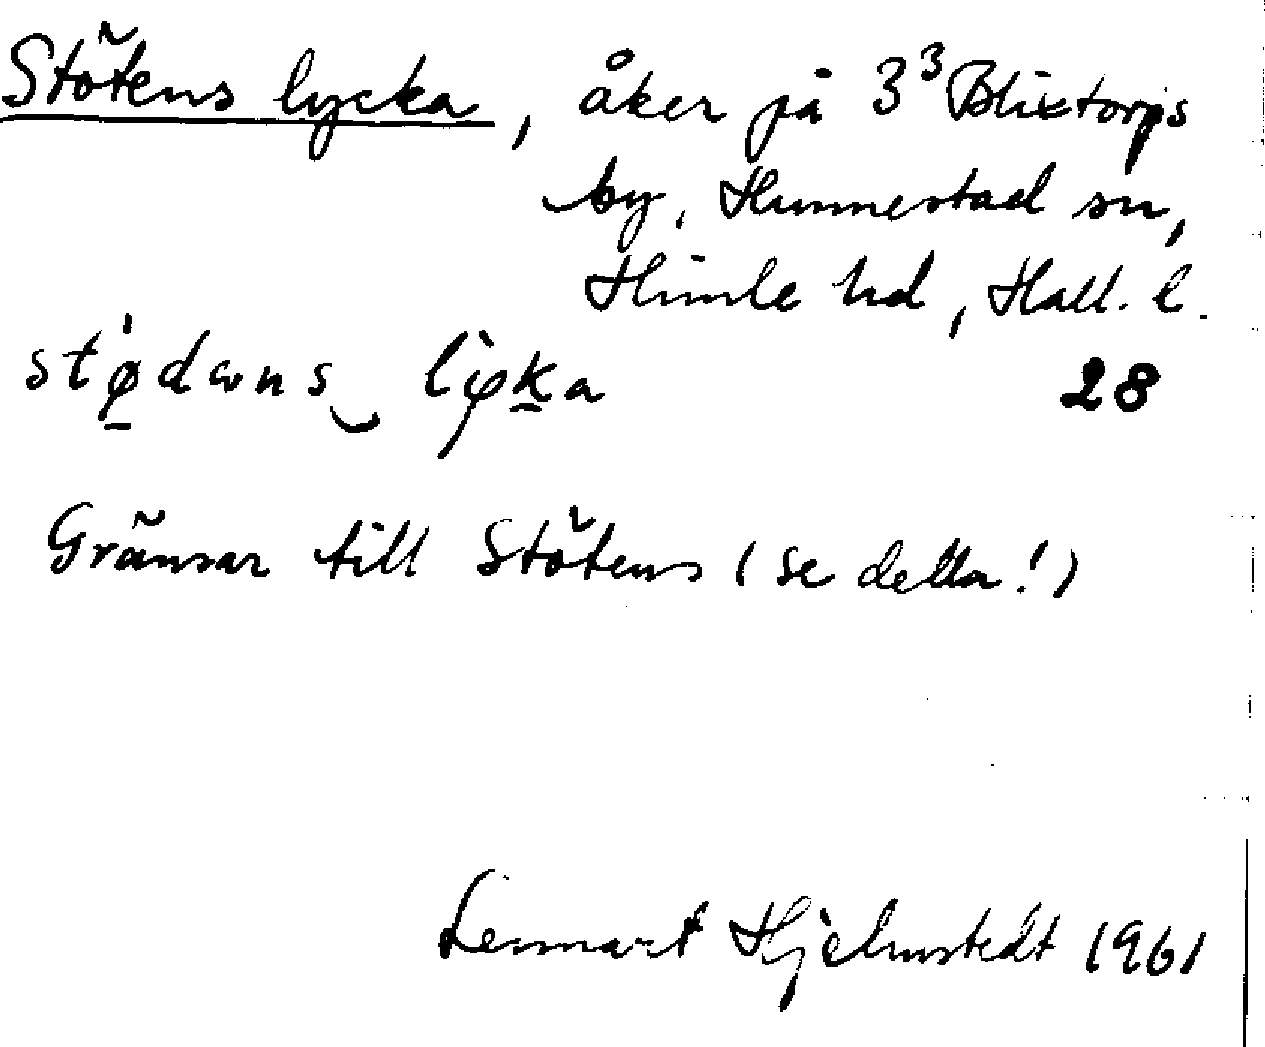 Stötens lycka, åker på 3³ Blixtorps
by, Hunnestad sn,
Himle hd, Hall. l.
stø̱dæns‿ lyḵa
28
Gränsar till Stötens (se detta!)
Lennart Hjelmstedt 1961